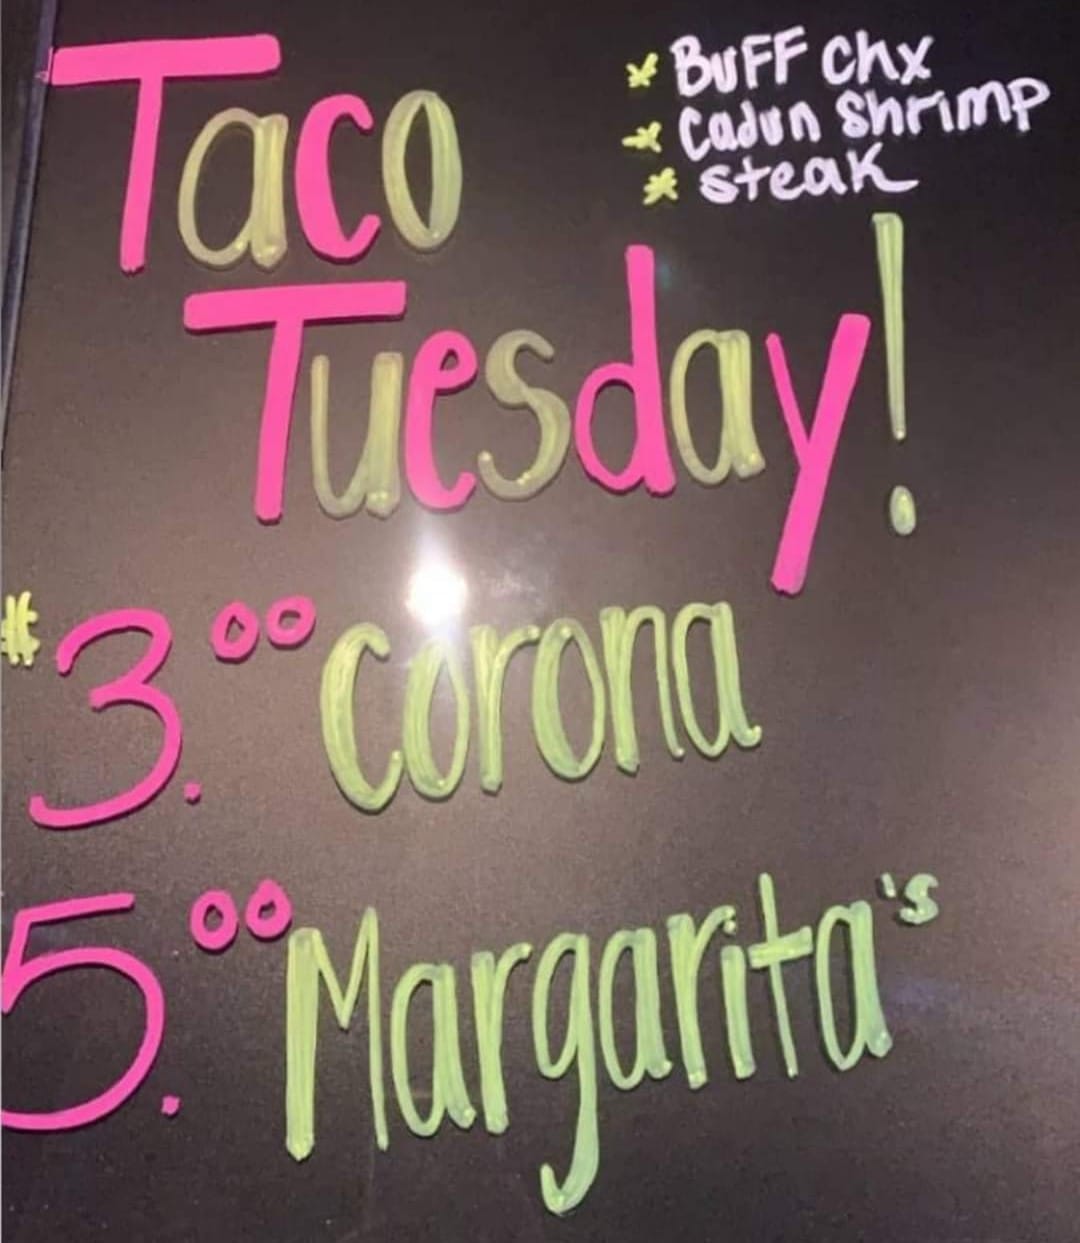 Taco
Tuesday!
* BUFF Chx
* Cadun Shrimp
* Steak
$3.00 Corona
5.00 Margarita's